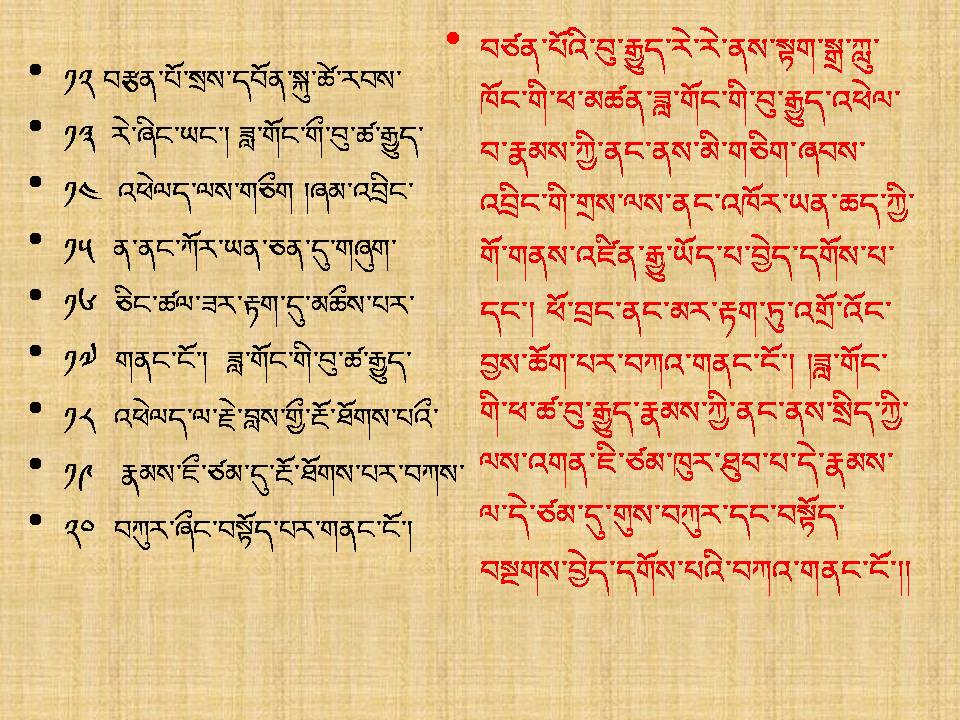 ༡༢ བརྩན་པོ་སྲས་དབོན་སྐུ་ཚེ་རབས་
༡༣ རེ་ཞིང་ཡང་། ཟླ་གོང་གི་བུ་ཚ་རྒྱུད་
༡༤ འཕེལད་ལས་གཅིག །ཞམ་འབྲིང་
༡༥ ན་ནང་ཀོར་ཡན་ཅན་དུ་གཞུག་
༡༦ ཅིང་ཚལ་ཟར་རྟག་དུ་མཆིས་པར་
༡༧ གནང་ངོ་། ཟླ་གོང་གི་བུ་ཚ་རྒྱུད་
༡༨ འཕེལད་ལ་རྗེ་བླས་ཀྱི་ངོ་ཐོགས་པའི་
༡༩ རྣམས་ཇི་ཙམ་དུ་ངོ་ཐོགས་པར་བཀས་
༢༠ བཀུར་ཞིང་བསྟོད་པར་གནང་ངོ་།
བཙན་པོའི་བུ་རྒྱུད་རེ་རེ་ནས་སྟག་སྒྲ་ཀླུ་
ཁོང་གི་ཕ་མཚན་ཟླ་གོང་གི་བུ་རྒྱུད་འཕེལ་
བ་རྣམས་ཀྱི་ནང་ནས་མི་གཅིག་ཞབས་
འབྲིང་གི་གྲས་ལས་ནང་འཁོར་ཡན་ཆད་ཀྱི་
གོ་གནས་འཛིན་རྒྱུ་ཡོད་པ་བྱེད་དགོས་པ་
དང་། ཕོ་བྲང་ནང་མར་རྟག་ཏུ་འགྲོ་འོང་
བྱས་ཆོག་པར་བཀའ་གནང་ངོ་། །ཟླ་གོང་
གི་ཕ་ཚ་བུ་རྒྱུད་རྣམས་ཀྱི་ནང་ནས་སྲིད་ཀྱི་
ལས་འགན་ཇི་ཙམ་ཁུར་ཐུབ་པ་དེ་རྣམས་
ལ་དེ་ཙམ་དུ་གུས་བཀུར་དང་བསྟོད་
བསྔགས་བྱེད་དགོས་པའི་བཀའ་གནང་ངོ་།།